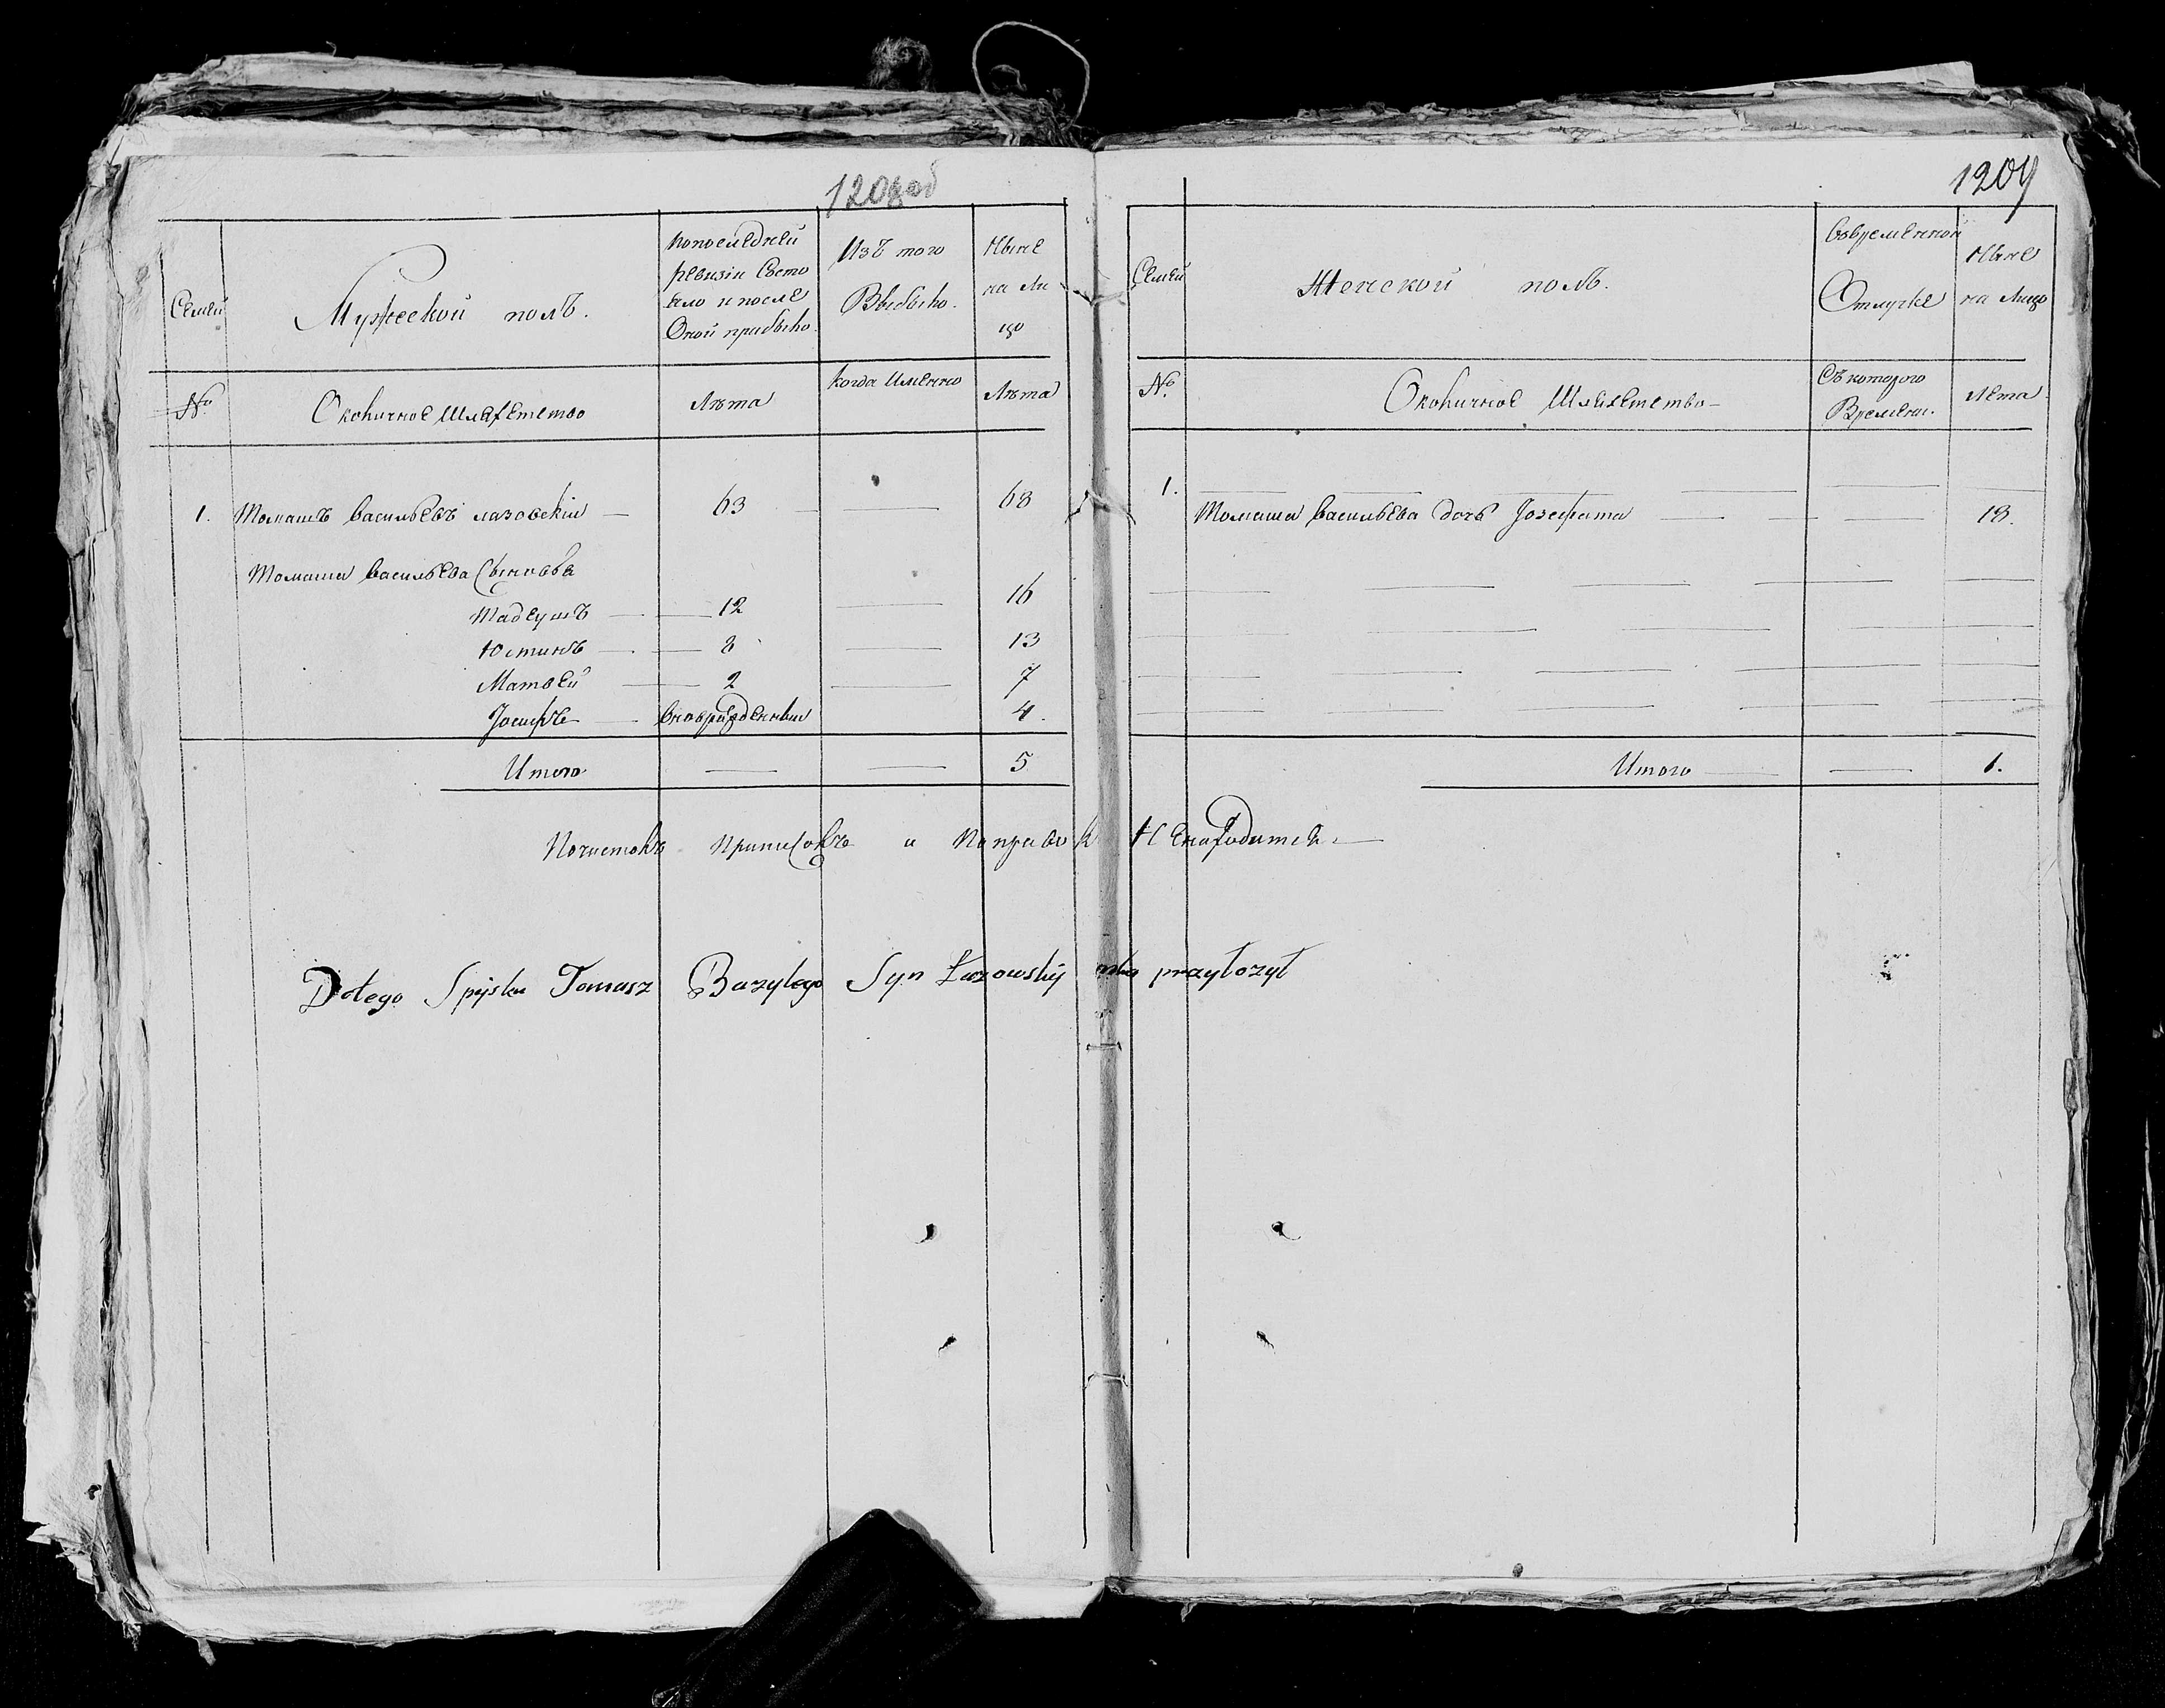 1208об
Семьи
Мужеской полъ.
Попоследней
ревизіи Состо
яло и после
Оной прибыло
Изъ того
Выбыло.
Ныне
на Ли
цо
№
Околичное Шляхетство
Лѣта
Когда Именно
Лѣта
1. Томашъ Васильевъ Лазовскій — 63 — 68
Томаша Васильева Сыновья
Тадеушъ — 12 — 16
Юстинъ — 8 — 13
Матвей — 2 — 7
Іосифъ — вновь рожденный 4.
Итого — — 5
1209
Семьи
Женской полъ.
Вовременной
Отлучке
Ныне
на Лицо
№
Околичное Шляхетство
Съ котораго
Времени.
Лета
1.
Томаша Васильева дочь Іозефата — — — 18.
Итого — — 1.
Почистокъ Приписокъ и Поправок Ненаходится.—
Dotego Spisku Tomasz Bazylego Syn Łazowskij ręke przyłożył